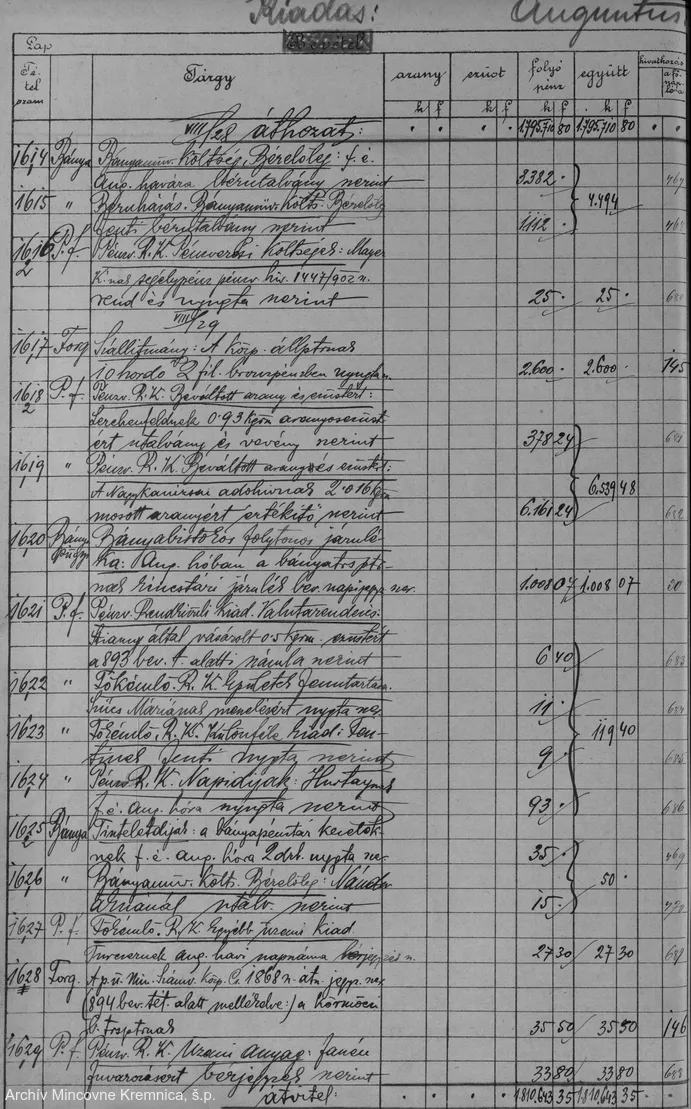 Kiadás: Augusztus
Pap Bevétel hivatkozás
Tétel szám Tárgy arany ezüst folyó pénz együtt a főnaplóra
k f k f k f k f
VIII/28 áthozat: 1.795.710 80 1.795.710 80
1614 Bánya Bányaműv. költség. Bérelőleg: f. é.
Aug. havára bérutalvány szerint 3382 · 467
1615 " Beruházás. Bányaműv. költs. Bérelőleg 4.494
fenti bérutalvány szerint 1112 · 468
1616 P.f. Pénzv. R.K. Pénzverési költségek: Mayer
2 K. nak segélypénz pénzv. hiv. 1447/902 n.
rend és nyugta szerint 25 · 25 · 680
VIII/29
1617 Forg Szállítmány: A közp. állptrnak
10 hordó 2 fil. bronzpénzben nyugta n. 2.600 · 2.600 · 145
1618 P.f. Pénzv. R.K. Beváltott arany és ezüstért:
2 Lerchenfeldnek 0·93 kgrm aranyosezüst
ért utalvány és vevény szerint 378 24 681
1619 " Pénzv. R.K. Beváltott arany és ezüstért: 6.539 48
A Nagykanizsai adóhivnak 2·016 kgrm
mosott aranyért értékítő szerint 6.161 24 682
1620 Bánya Bányabirtokos folytonos járulé-
ka: Aug. hóban a bányatrs ptr-
nak kincstári járulék bev. napi jegyz. szer. 1.008 07 1.008 07 20
1621 P.f. Pénzv. Rendkívüli kiad. Valutarendezési
által vásárolt 0·5 kgrm. ezüstért
a 893 bev. t. alatti számla szerint 6 40 683
1622 " Főkémlő. R.K. Épületek fenntartása.
Szűcs Máriának meszelésért nyugta sze. 11 · 684
1623 " Főkémlő. R.K. Különféle kiad: Fen- 119 40
tinek fenti nyugta szerint 9 · 685
1624 " Pénzv. R.K. Napidíjak:
f. é. aug. hóra nyugta szerint 93 · 686
1625 Bánya Tiszteletdíjak: a bányapénztár kezelők-
2 nek f. é. aug. hóra 2 drb. nyugta sze. 35 · 469
1626 " Bányaműv. költs. Bérelőleg: Nándor 50 ·
utalv. szerint 15 · 470
1627 P.f. Főkémlő. R.K. Egyébb üzemi kiad
aug. havi napszáma bérjegyzés n. 27 30 27 30 687
1628 Forg. A p. ü. Min. Számv. közp. Cs. 1868 n. átn. jegyz. sze.
(894 bev. tét. alatt mellékelve:) a körmöczi
b. trsptrnak 35 50 35 50 146
1629 P.f. Pénzv. R.K. Üzemi anyag:
fuvarozásért bérjegyzék szerint 33 80 33 80 688
átvitel: 1.810.643 35 1.810.643 35
Archív Mincovne Kremnica, š.p.